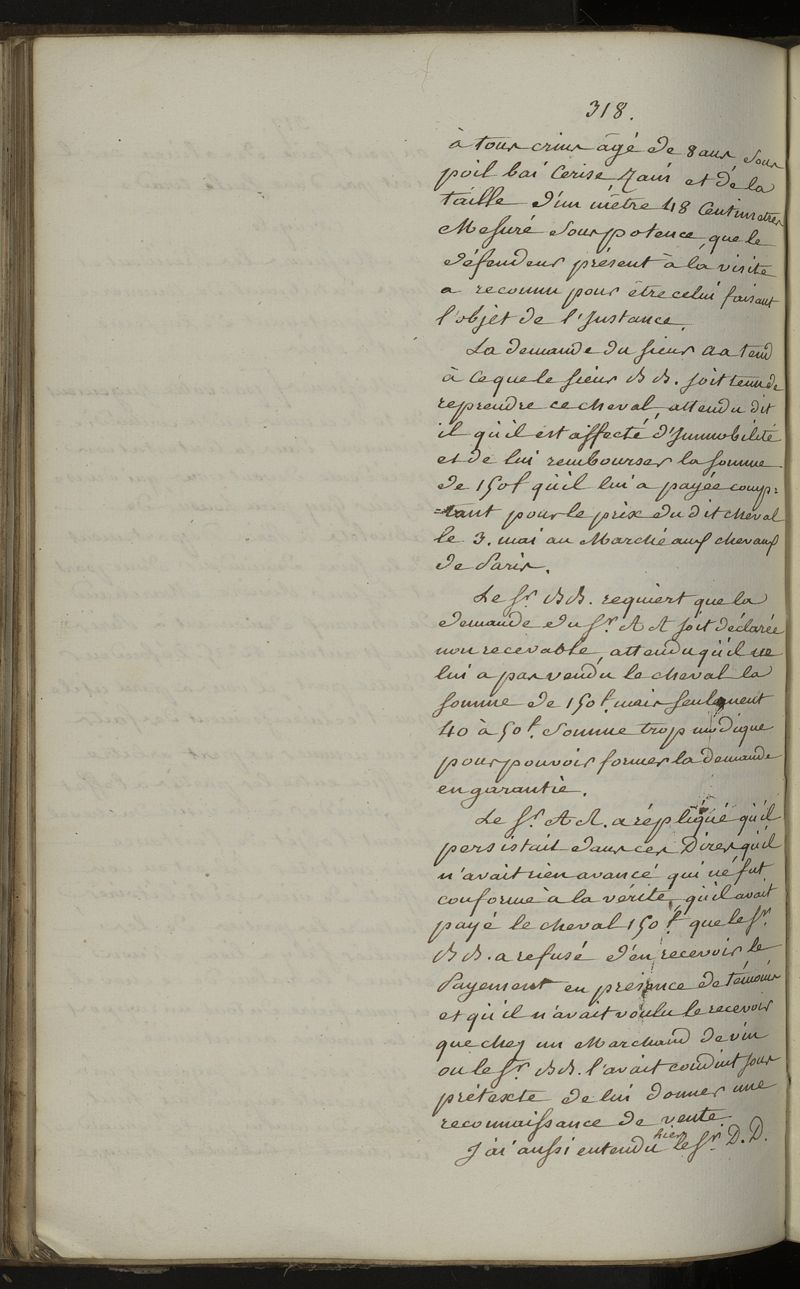 318.
à tous crins âgé de 8 ans sous
poil bai Cerise Zain et de la
taille d'un mètre 48 Centimetres
Mesuré sous potence, que le
défendeur présent à la visite
a reconnu pour être celui faisant
l'objet de l'Instance.
La demande du sieur A A tend
à ce que le sieur B B. soit tenu de
reprendre ce cheval, attendu dit
il qu'il est affecté d'Immobilité
et de lui rembourser la somme
de 150f qu'il lui a payée comp=
=tant pour le prix du dit cheval
le 3. mai au Marché aux chevaux
de Paris.
Le Sr. B B. requiert que la
demande du Sr. A A soit déclarée
non recevable, attendu qu'il ne
lui a pas vendu le cheval la
somme de 150f. mais seulement
40 à 50f. somme trop modique
pour pouvoir former la demande
en garantie.
Le Sr. A A. a répliqué qu'il
persistait dans ces Dires qu'il
n'avait rien avancé qui ne fut
conforme à la vérité, qu'il avait
payé le cheval 150f. que le Sr.
B B. a refusé d'en recevoir le
Payement en présence de témoins
et qu'il n'avait voulu le recevoir
que chez un Marchand de vin
ou le Sr. B B. l'avait conduit sous
prétexte de lui donner une
reconnaissance de vente.
J'ai aussi entendu hier le Sr. D. D.